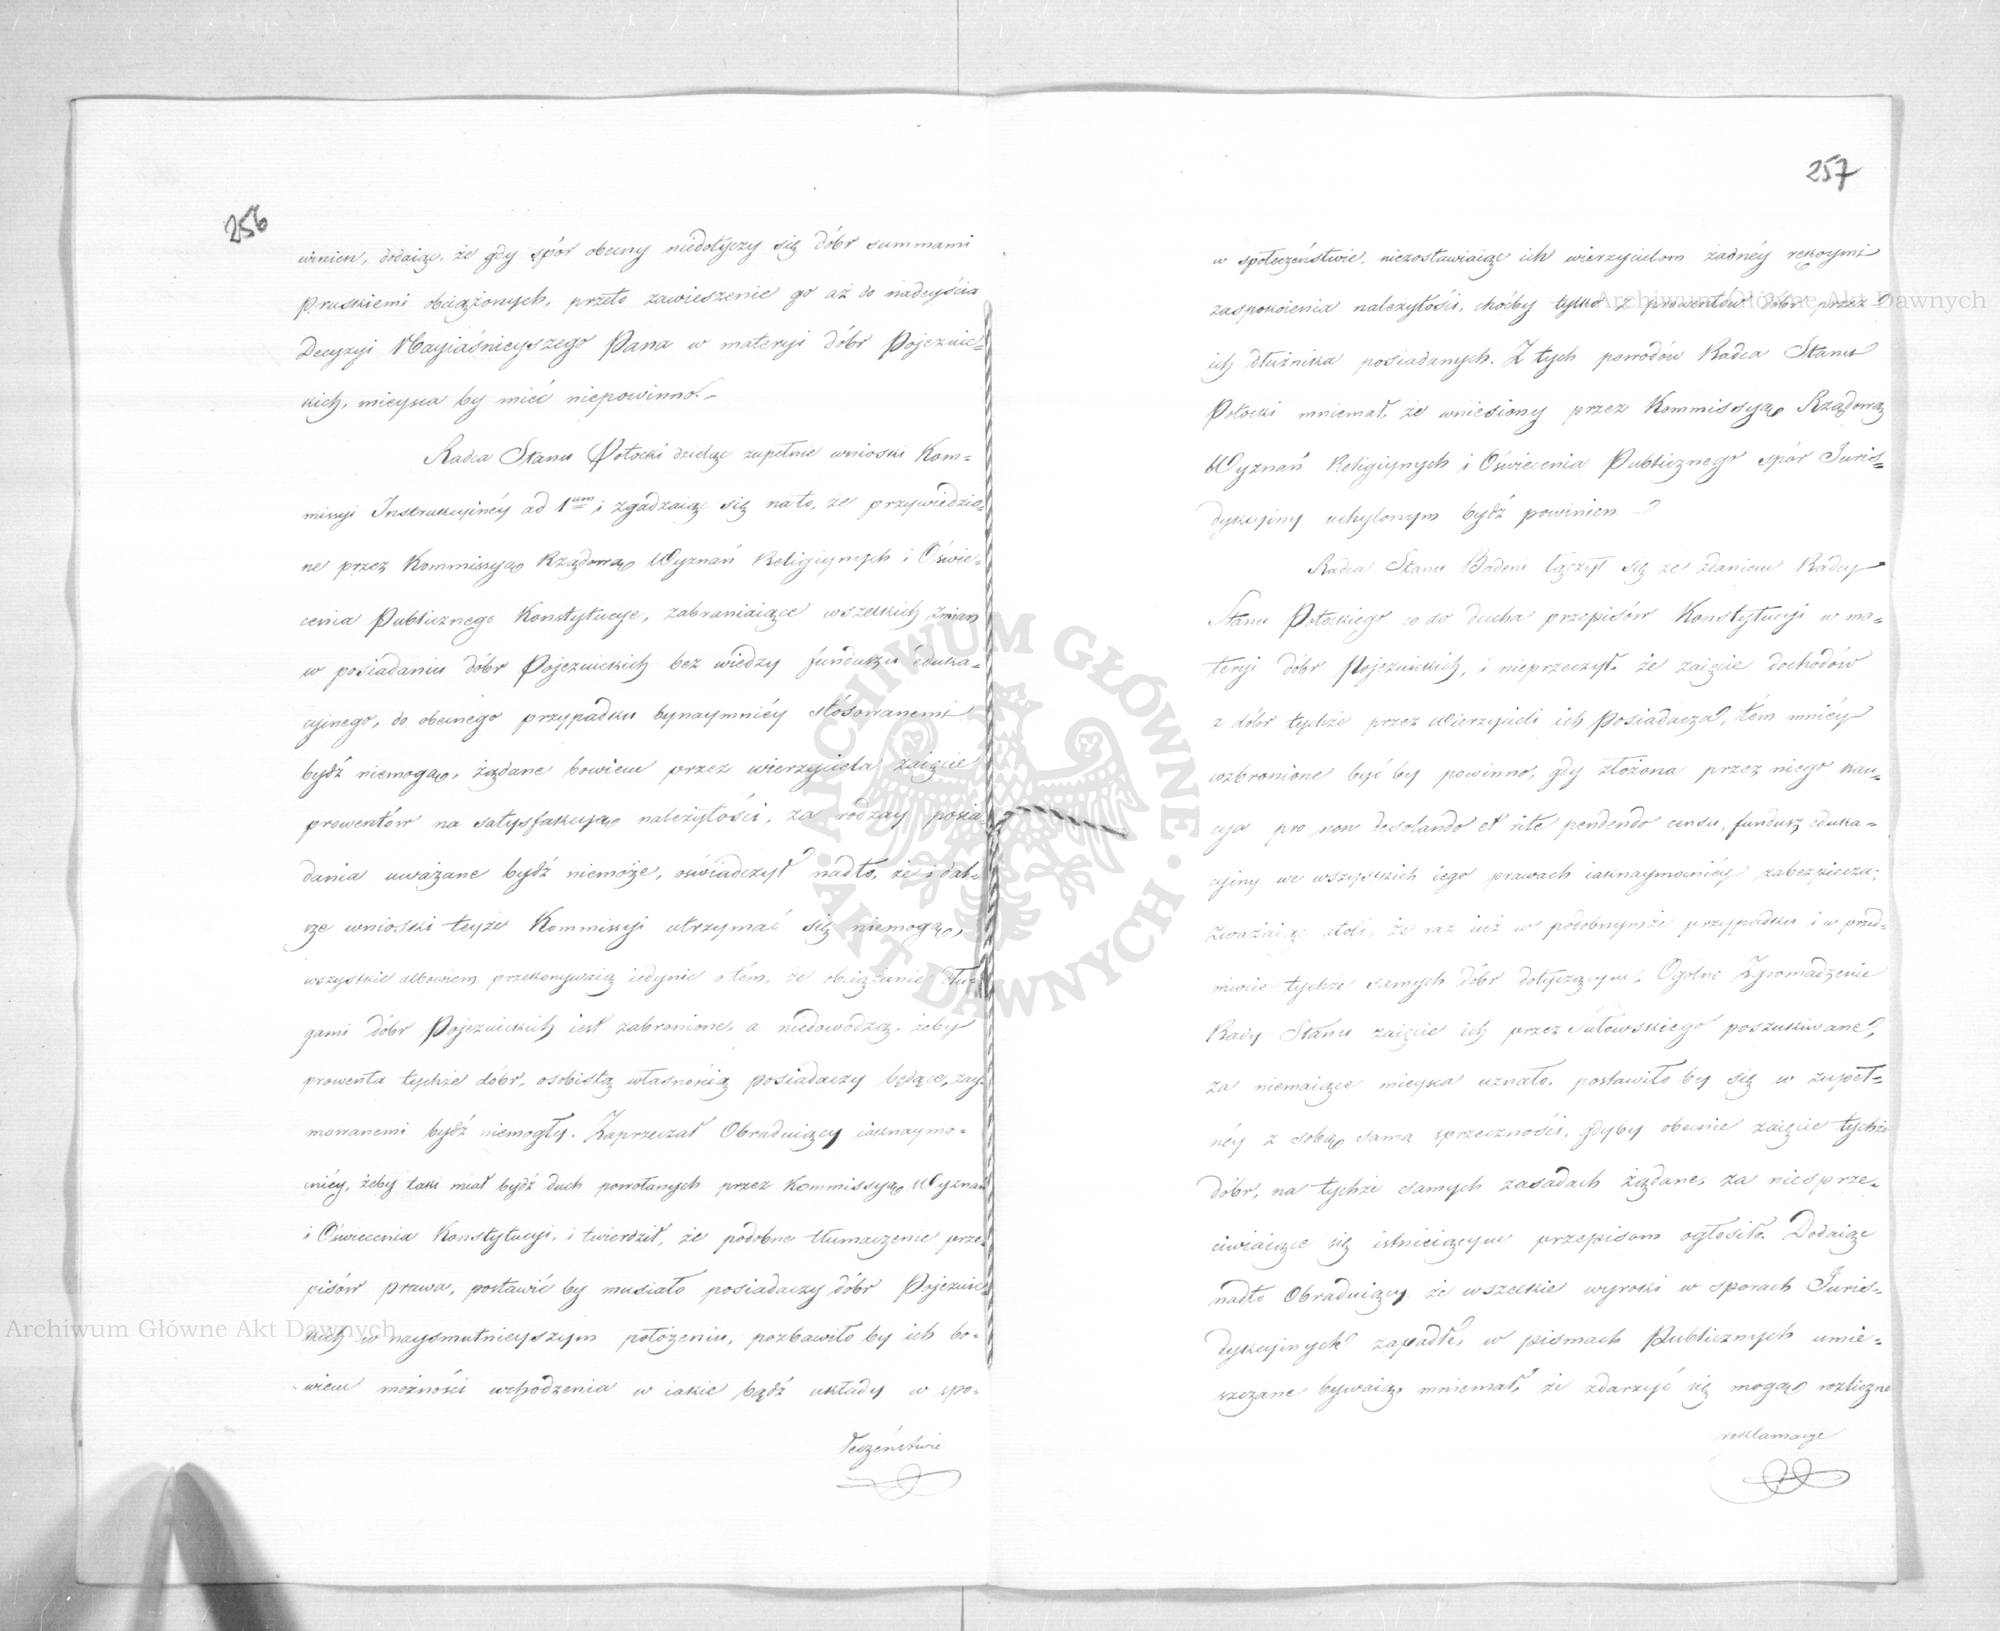 256
winien, dodaiąc, że gdy spór obecny niedotyczy się dóbr summami
Pruskiemi obciążonych, przeto zawieszenie go aż do nadeyścia
Decyzyi Nayiaśnieyszego Pana w materyi dóbr Pojezuic=
kich, mieysca by mieć niepowinno.
Radca Stanu Potocki dzieląc zupełnie wnioski Kom=
missyi Instrukcyinéy ad 1um i zgadzaiąc się na to, że przywiedzio=
ne przez Kommissyą Rządową Wyznań Religiynych i Oświe=
cenia Publicznego Konstytucye, zabraniaiące wszelkich zmian
w posiadaniu dóbr Pojezuickich bez wiedzy funduszu eduka=
cyjnego, do obecnego przypadku bynaymniéy stósowanemi
bydź niemogą, żądane bowiem przez wierzyciela zaięcie
prowentów na satysfakcyą należytości, za rodzay posia=
dania uważane bydź niemoże, oświadczył nadto, że i dal=
sze wnioski teyże Kommissyi utrzymać się niemogą,
wszystkie albowiem przekonywaią iedynie o tém, że obciążenie dłu=
gami dóbr Pojezuickich iest zabronione, a niedowodzą, żeby
prowenta tychże dóbr, osobistą własnością posiadaczy będące, zay=
mowanemi bydź niemogły. Zaprzeczał Obraduiący iaknaymo=
cniéy, żeby taki miał bydź duch powołanych przez Kommissyą Wyznań
i Oświecenia Konstytucyi, i twierdził, że podobne tłumaczenie prze=
pisów prawa, postawić by musiało posiadaczy dóbr Pojezuic=
kich w naysmutnieyszym położeniu, pozbawiło by ich bo=
wiem możności wchodzenia w iakie bądź układy w spo=
łeczeństwie
257
w społeczeństwie, niezostawiaiąc ich wierzycielom żadnéy rękoymi
zaspokoienia należytości, choćby tylko z prowentów dóbr przez
ich dłużnika posiadanych. Z tych powodów Radca Stanu
Potocki mniemał, że wniesiony przez Kommissyą Rządową
Wyznań Religiynych i Oświecenia Publicznego spór Juris=
dykcyiny uchylonym bydź powinien
Radca Stanu Badeni łączył się ze zdaniem Radcy
Stanu Potockiego co do ducha przepisów Konstytucyi w ma=
teryi dóbr Pojezuickich, i nieprzeczył, że zaięcie dochodów
z dóbr tychże przez wierzycieli ich Posiadacza, tém mniéy
wzbronione być by powinno, gdy złożona przez niego kau=
cya pro non desolando et rite pendendo censu, fundusz eduka=
cyiny we wszystkich iego prawach iaknaymocniéy zabezpiecza;
zważaiąc atoli, że raz iuż w podobnymże przypadku i w przed=
miocie tychże samych dóbr dotyczącym, Ogólne Zgromadzenie
Rady Stanu zaięcie ich przez Sułowskiego poszukiwane,
za niemaiące mieysca uznało, postawiło by się w zupeł=
néy z sobą samą sprzeczności, gdyby obecnie zaięcie tychże
dóbr, na tychże samych zasadach żądane, za niesprze=
ciwiaiące się istnieiącym przepisom ogłosiło. Dodaiąc
nadto Obraduiący że wszelkie wyroki w sporach Juris=
dykcyinych zapadłe, w pismach Publicznych umie=
szczane bywaią, mniemał, że zdarzyć się mogą rozliczne
reklamacye
Archiwum Główne Akt Dawnych
Archiwum Główne Akt Dawnych
ARCHIWUM GŁÓWNE · AKT DAWNYCH ·